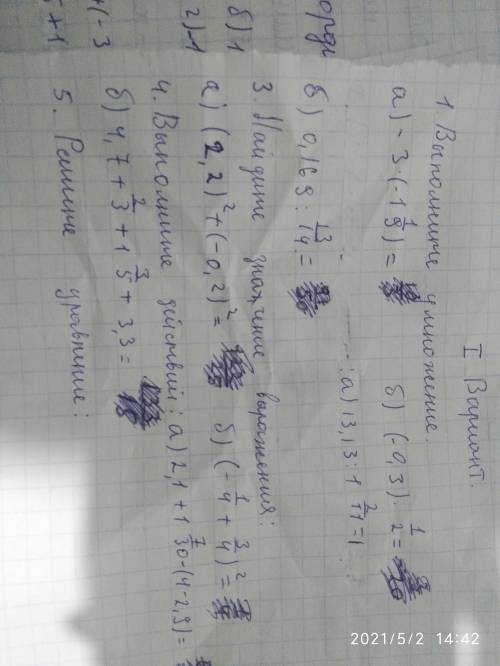 I Вариант.
1. Выполните умножение.
а) - 3·(-1 1/9) = б) (-0,3)·1/2 =
: а) 13,13 : 1 2/11 = 1
б) 0,169 : 13/14 =
3. Найдите значение выражения:
а) (2,2)² + (-0,2)² = б) (-1/4 + 3/4)² =
4. Выполните действий: а) 2,1 + 1 7/30 - (4 - 2,9) =
б) 4,7 + 2/3 + 1 3/5 + 3,3 =
5. Решите уравнение:
б) 1
2) -1
+(-3
5+1
2021/5/2 14:42